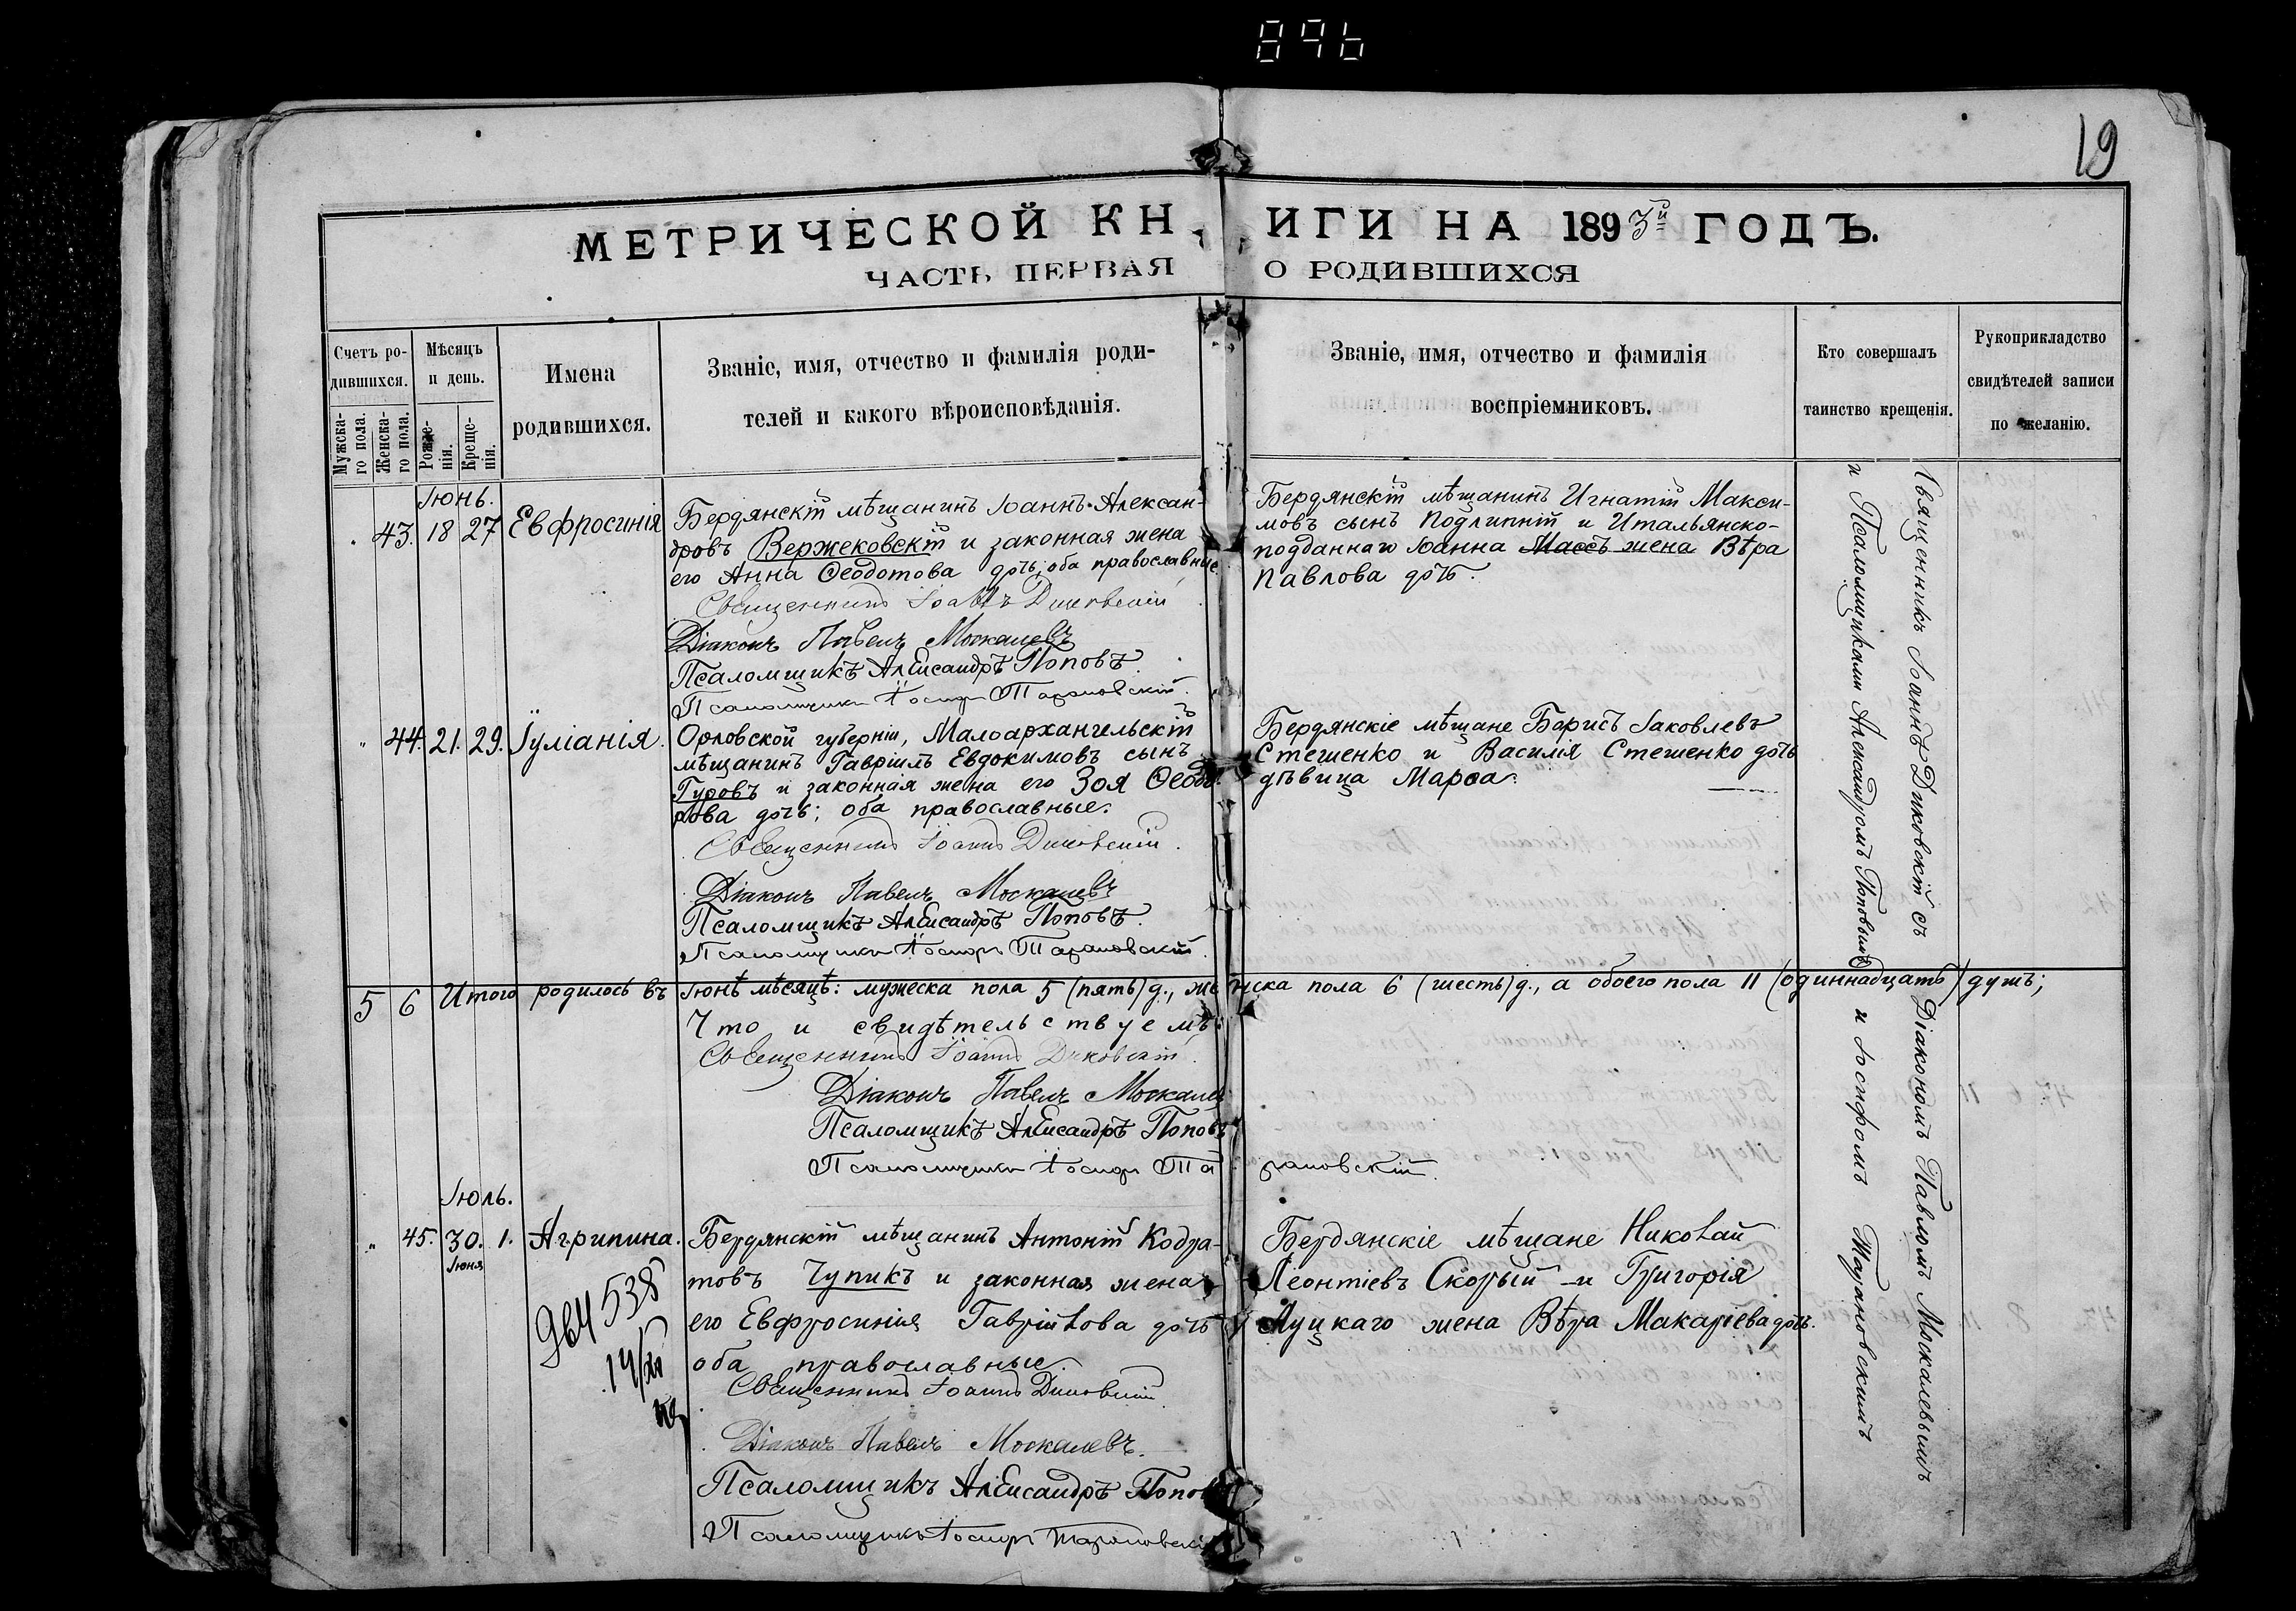 896
19
МЕТРИЧЕСКОЙ КНИГИ НА 1893й ГОДЪ.
ЧАСТЬ ПЕРВАЯ О РОДИВШИХСЯ
Счетъ ро-
дившихся.
Мужска-
го пола.
Женска-
го пола.
Мѣсяцъ
и день.
Рожде-
нія.
Креще-
нія.
Имена
родившихся.
Званіе, имя, отчество и фамилія роди-
телей и какого вѣроисповѣданія.
Званіе, имя, отчество и фамилія
воспріемниковъ.
Кто совершалъ
таинство крещенія.
Рукоприкладство
свидѣтелей записи
по желанію.
Іюнь.
43. 18 27 Евфросинія
Бердянскій мѣщанинъ Іоаннъ Алексан-
дровъ Вержековскій и законная жена
его Анна Ѳеодотова дочь; оба православные
Священникъ Іоаннъ Диковскій
Діаконъ Павелъ Москалевъ
Псаломщикъ Александръ Поповъ.
Псаломщикъ Іосифъ Тарановскій.
Бердянскій мѣщанинъ Игнатій Макси-
мовъ сынъ Подлипній и Итальянско-
подданнаго Іоанна Массъ жена Вѣра
Павлова дочь.
" 44. 21. 29. Іуліанія.
Орловской губерніи, Малоархангельскій
мѣщанинъ Гавріилъ Евдокимовъ сынъ
Гуровъ и законная жена его Зоя Ѳеодо-
рова дочь; оба православные.
Священникъ Іоаннъ Диковскій.
Діаконъ Павелъ Москалевъ
Псаломщикъ Александръ Поповъ.
Псаломщикъ Іосифъ Тарановскій.
Бердянскіе мѣщане Борисъ Іаковлевъ
Стешенко и Василія Стешенко дочь
дѣвица Марѳа.
5 6 Итого родилось въ Іюнѣ мѣсяцѣ: мужеска пола 5 (пять) д., женска пола 6 (шесть) д., а обоего пола 11 (одиннадцать) душъ;
Что и свидѣтельствуемъ:
Священникъ Іоаннъ Диковскій.
Діаконъ Павелъ Москалев
Псаломщикъ Александръ Поповъ
Псаломщикъ Іосифъ Тарановскій.
Іюль.
" 45. 30. 1. Агрипина.
Іюня
Бердянскій мѣщанинъ Антоній Кодра-
товъ Чупикъ и законная жена
его Евфросинія Гавріилова дочь
оба православные.
Священникъ Іоаннъ Диковскій
Діаконъ Павелъ Москалевъ.
Псаломщикъ Александръ Поповъ
Псаломщикъ Іосифъ Тарановскій
Бердянскіе мѣщане Николай
Леонтіевъ Скорый и Григорія
Луцкаго жена Вѣра Макаріева дочь.
538
Священникъ Іоаннъ Диковскій съ Діакономъ Павломъ Москалевымъ
и Псаломщиками Александромъ Поповымъ и Іосифомъ Тарановскимъ